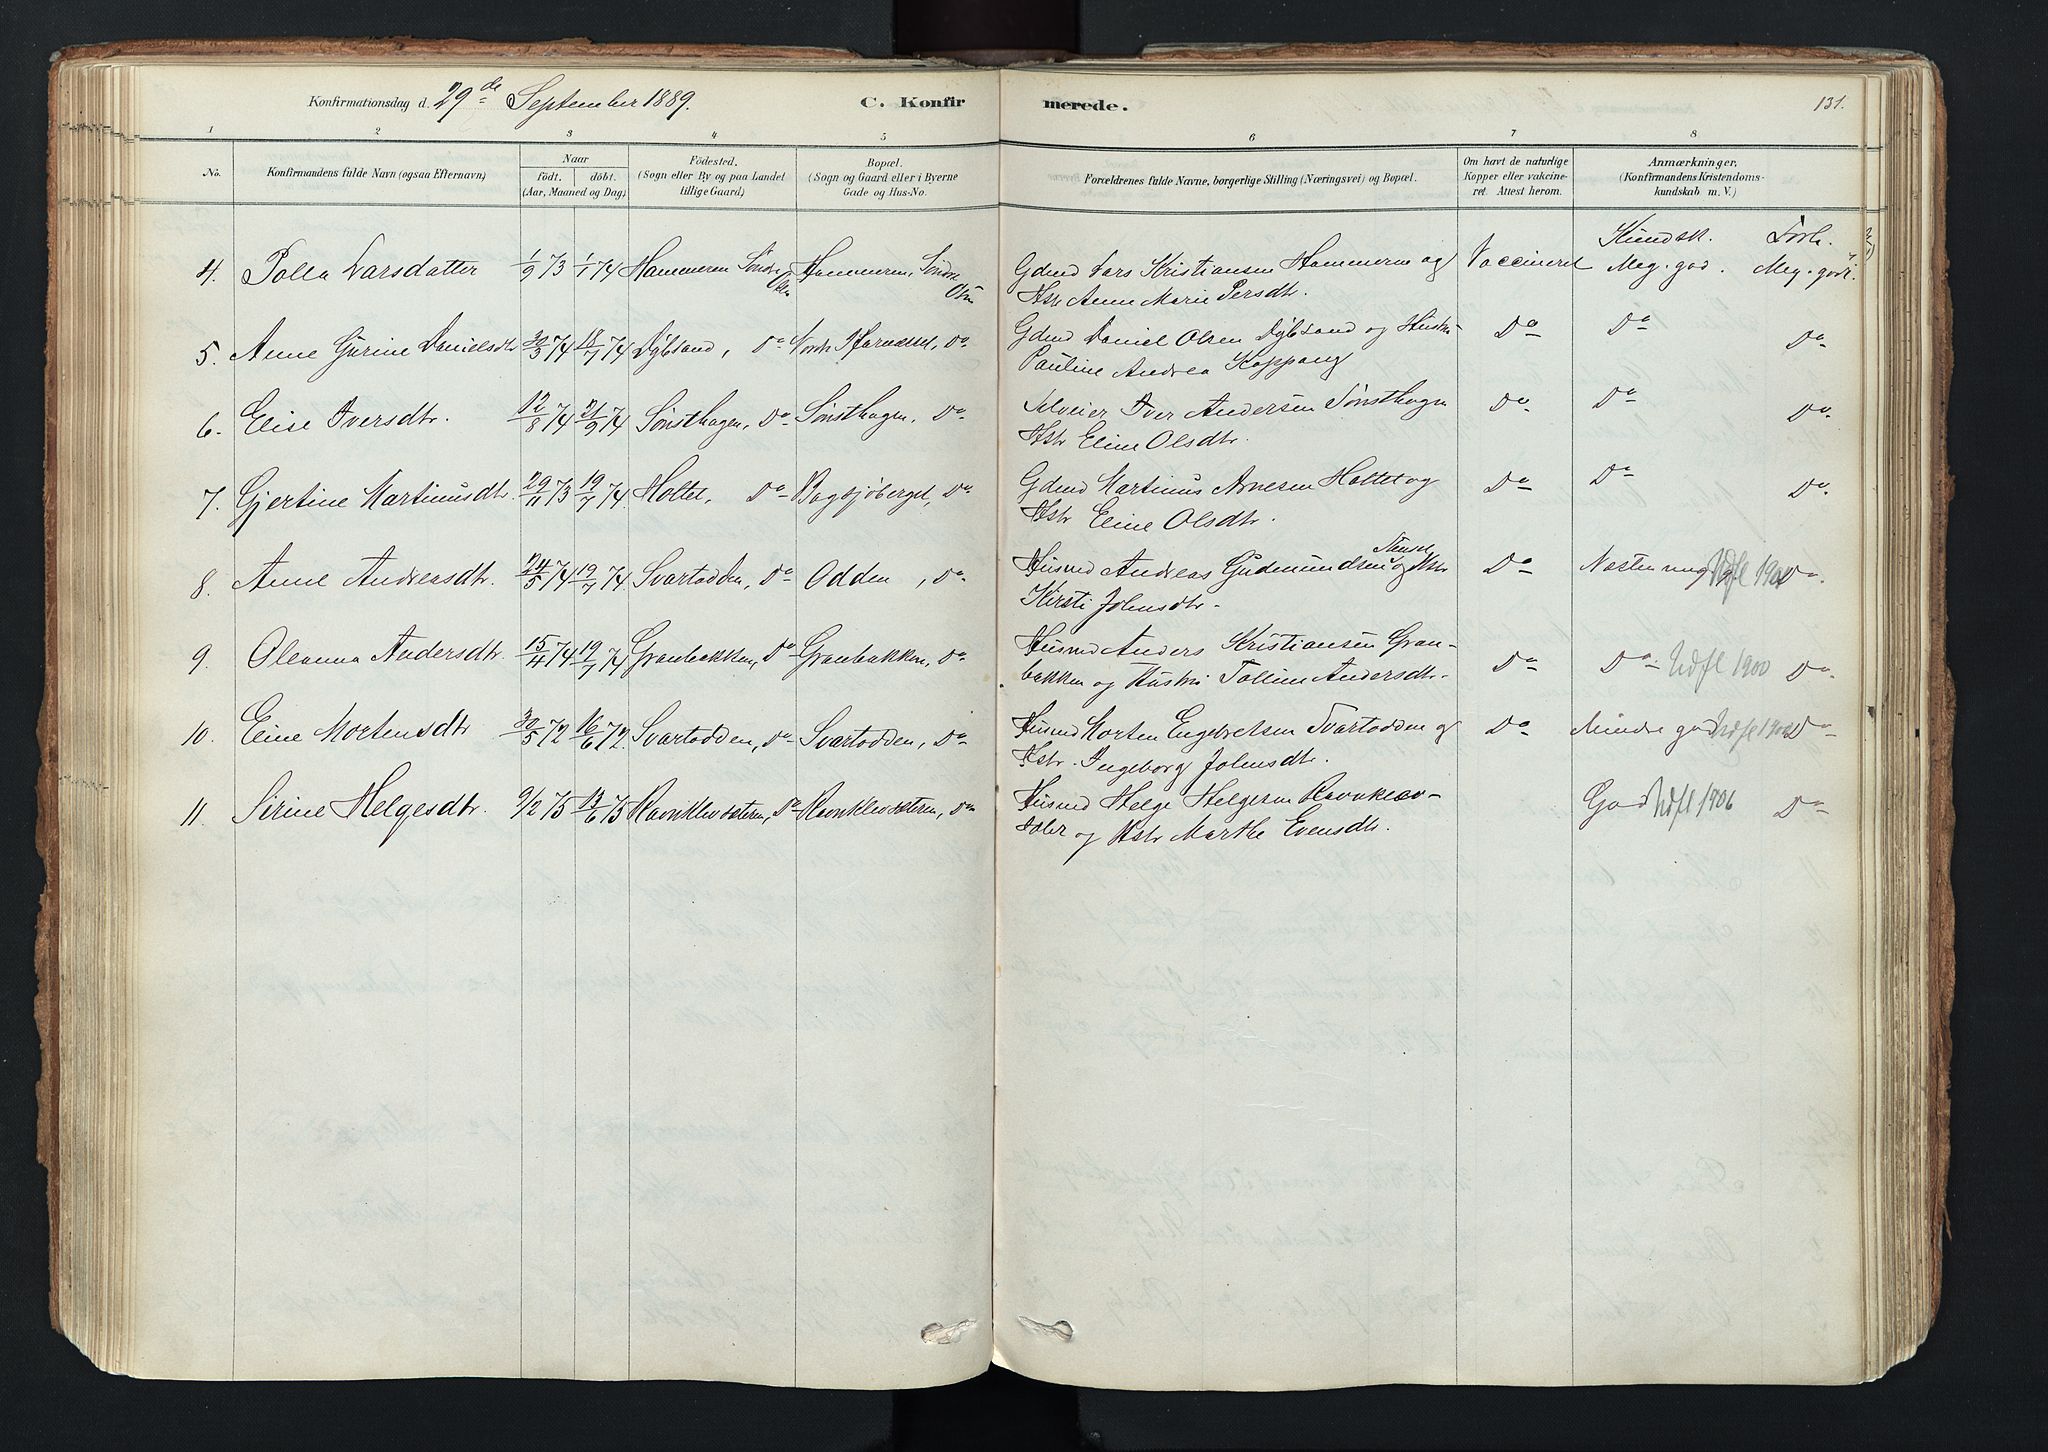 Konfirmationsdag d. 29de September 1889. C. Konfirmerede. 131.
1 2 3 4 5 6 7 8
No. Konfirmandens fulde Navn (ogsaa Efternavn) Naar födt. döbt. (Aar, Maaned og Dag) Födested. (Sogn eller By og paa Landet tillige Gaard) Bopæl. (Sogn og Gaard eller i Byerne Gade og Hus-No. Forældrenes fulde Navne, borgerlige Stilling (Næringsvei) og Bopæl. Om havt de naturlige Kopper eller vakcineret. Attest herom. Anmærkninger. (Konfirmandens Kristendomskundskab m. V.)
Kundsk. Forh.
4. Polla Larsdatter 1/9 73 1/1 74 Hammeren Søndre Osen Hammeren, Søndre Osen Gdmd Lars Kristiansen Hammeren og Vaccineret Meg. god. Meg. godt.
Hstr Anne Marie Persdtr.
5. Anne Gurine Danielsdtr 30/3 74 18/7 74 Dybsand, Do Nordr. Do Gdmd Daniel Olsen Dybsand og Hustru Do Do Do
Pauline Andrea Koppang
6. Elise Iversdtr. 12/8 74 21/9 74 Sønsthagen, Do Sønsthagen, Do Selveier Iver Andersen Sønsthagen Do Do Do
Hstr Eline Olsdtr.
7. Gjertine Martinusdtr. 29/11 73 19/7 74 Holtet, Do Bagsjøberget, Do Gdmd Martinus Arnesen Holtet og Do Do Do
Hstr Eline Olsdtr.
8. Anne Andreasdtr. 24/5 74 19/7 74 Svartodden, Do Odden, Do Husmd Andreas Gudmundsen og Hstr Do Næsten meg. g. Udfl 1900 Do
Kirsti Johnsdtr.
9. Oleanna Andersdtr. 15/4 74 19/7 74 Granbakken, Do Granbakken, Do Husmd Anders Kristiansen Gran- Do Do Udfl 1900 Do
bakken og Hustru Folline Andersdtr.
10. Eline Mortensdtr 30/5 72 16/6 72 Svartodden, Do Svartodden, Do Husmd Morten Engebretsen Svartodden og Do Mindre god Udfl 1900 Do
Hstr. Ingeborg Johnsdtr.
11. Sirine Helgesdtr. 9/2 75 13/6 75 Ravnklevsæteren, Do Ravnklevsæteren, Do Husmd Helge Helgesen Ravnklev- God Udfl 1906 Do
sæter og Hstr Marthe Evensdtr.